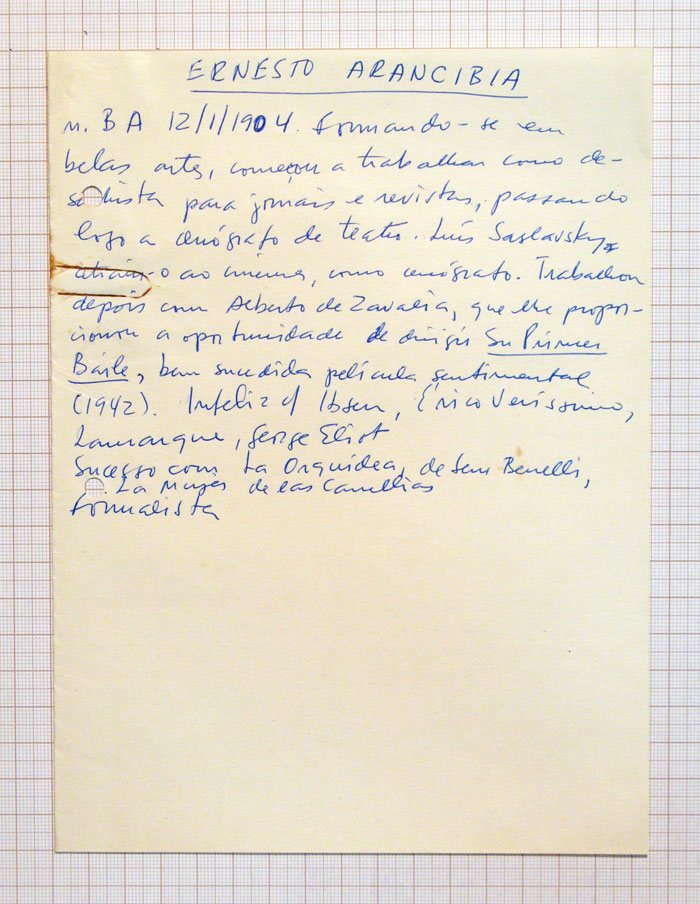 ERNESTO ARANCIBIA
n. BA 12/1/1904. Formando-se em
belas artes, começou a trabalhar como de-
senhista para jornais e revistas, passando
logo a cenógrafo de teatro. Luis Saslavsky
atraiu-o ao cinema, como cenógrafo. Trabalhou
depois com Alberto de Zavalia, que lhe propor-
cionou a oportunidade de dirigir Su Primer
Baile, bem sucedida película sentimental
(1942). Infeliz c/ Ibsen, Érico Veríssimo,
Lamarque, George Eliot
Sucesso com La Orquídea, de Sem Benelli,
La Mujer de las Camellias
Formalista